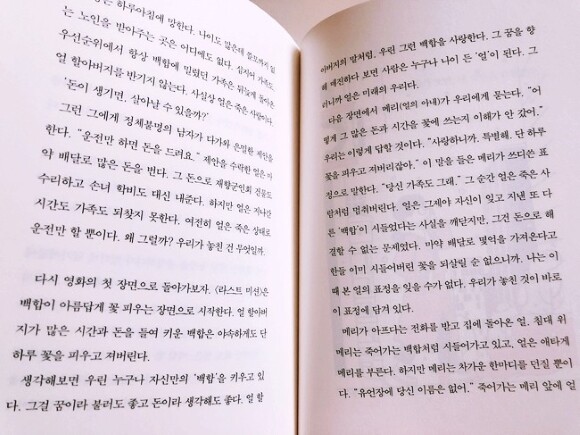 은 하루아침에 망한다. 나이도 많은데 쓸모까지 없
는 노인을 받아주는 곳은 어디에도 없다. 심지어 가족도.
우선순위에서 항상 백합에 밀렸던 가족은 뒤늦게 돌아온
얼 할아버지를 반기지 않는다. 사실상 얼은 죽은 사람이다.
'돈이 생기면, 살아날 수 있을까?'
그런 그에게 정체불명의 남자가 다가와 은밀한 제안을
한다. "운전만 하면 돈을 드려요." 제안을 수락한 얼은 마
약 배달로 많은 돈을 번다. 그 돈으로 재향군인회 건물도
수리하고 손녀 학비도 대신 내준다. 하지만 얼은 지나간
시간도 가족도 되찾지 못한다. 여전히 얼은 죽은 상태로
운전만 할 뿐이다. 왜 그럴까? 우리가 놓친 건 무엇일까.
다시 영화의 첫 장면으로 돌아가보자. 〈라스트 미션〉은
백합이 아름답게 꽃 피우는 장면으로 시작한다. 얼 할아버
지가 많은 시간과 돈을 들여 키운 백합은 야속하게도 단
하루 꽃을 피우고 져버린다.
생각해보면 우린 누구나 자신만의 '백합'을 키우고 있
다. 그걸 꿈이라 불러도 좋고 돈이라 생각해도 좋다. 얼 할
아버지의 말처럼, 우린 그런 백합을 사랑한다. 그 꿈을 향
해 매진하다 보면 사람은 누구나 나이 든 '얼'이 된다. 그
러니까 얼은 미래의 우리다.
다음 장면에서 메리(얼의 아내)가 우리에게 묻는다. "어
떻게 그 많은 돈과 시간을 꽃에 쓰는지 이해가 안 갔어."
우리는 이렇게 답할 것이다. "사랑하니까. 특별해. 단 하루
꽃을 피우고 져버리잖아." 이 말을 들은 메리가 쓰디쓴 표
정으로 말한다. "당신 가족도 그래." 그 순간 얼은 죽은 사
람처럼 멈춰버린다. 얼은 그제야 자신이 잊고 지낸 또 다
른 '백합'이 시들었다는 사실을 깨닫지만, 그건 돈으로 해
결할 수 없는 문제였다. 마약 배달로 몇억을 가져온다고
한들 이미 시들어버린 꽃을 되살릴 순 없으니까. 나는 이
때 본 얼의 표정을 잊을 수가 없다. 우리가 놓친 것이 바로
이 표정에 담겨 있다.
메리가 아프다는 전화를 받고 집에 돌아온 얼. 침대 위
메리는 죽어가는 백합처럼 시들어가고 있고, 얼은 애타게
메리를 부른다. 하지만 메리는 차가운 한마디를 던질 뿐이
다. "유언장에 당신 이름은 없어." 죽어가는 메리 앞에 얼